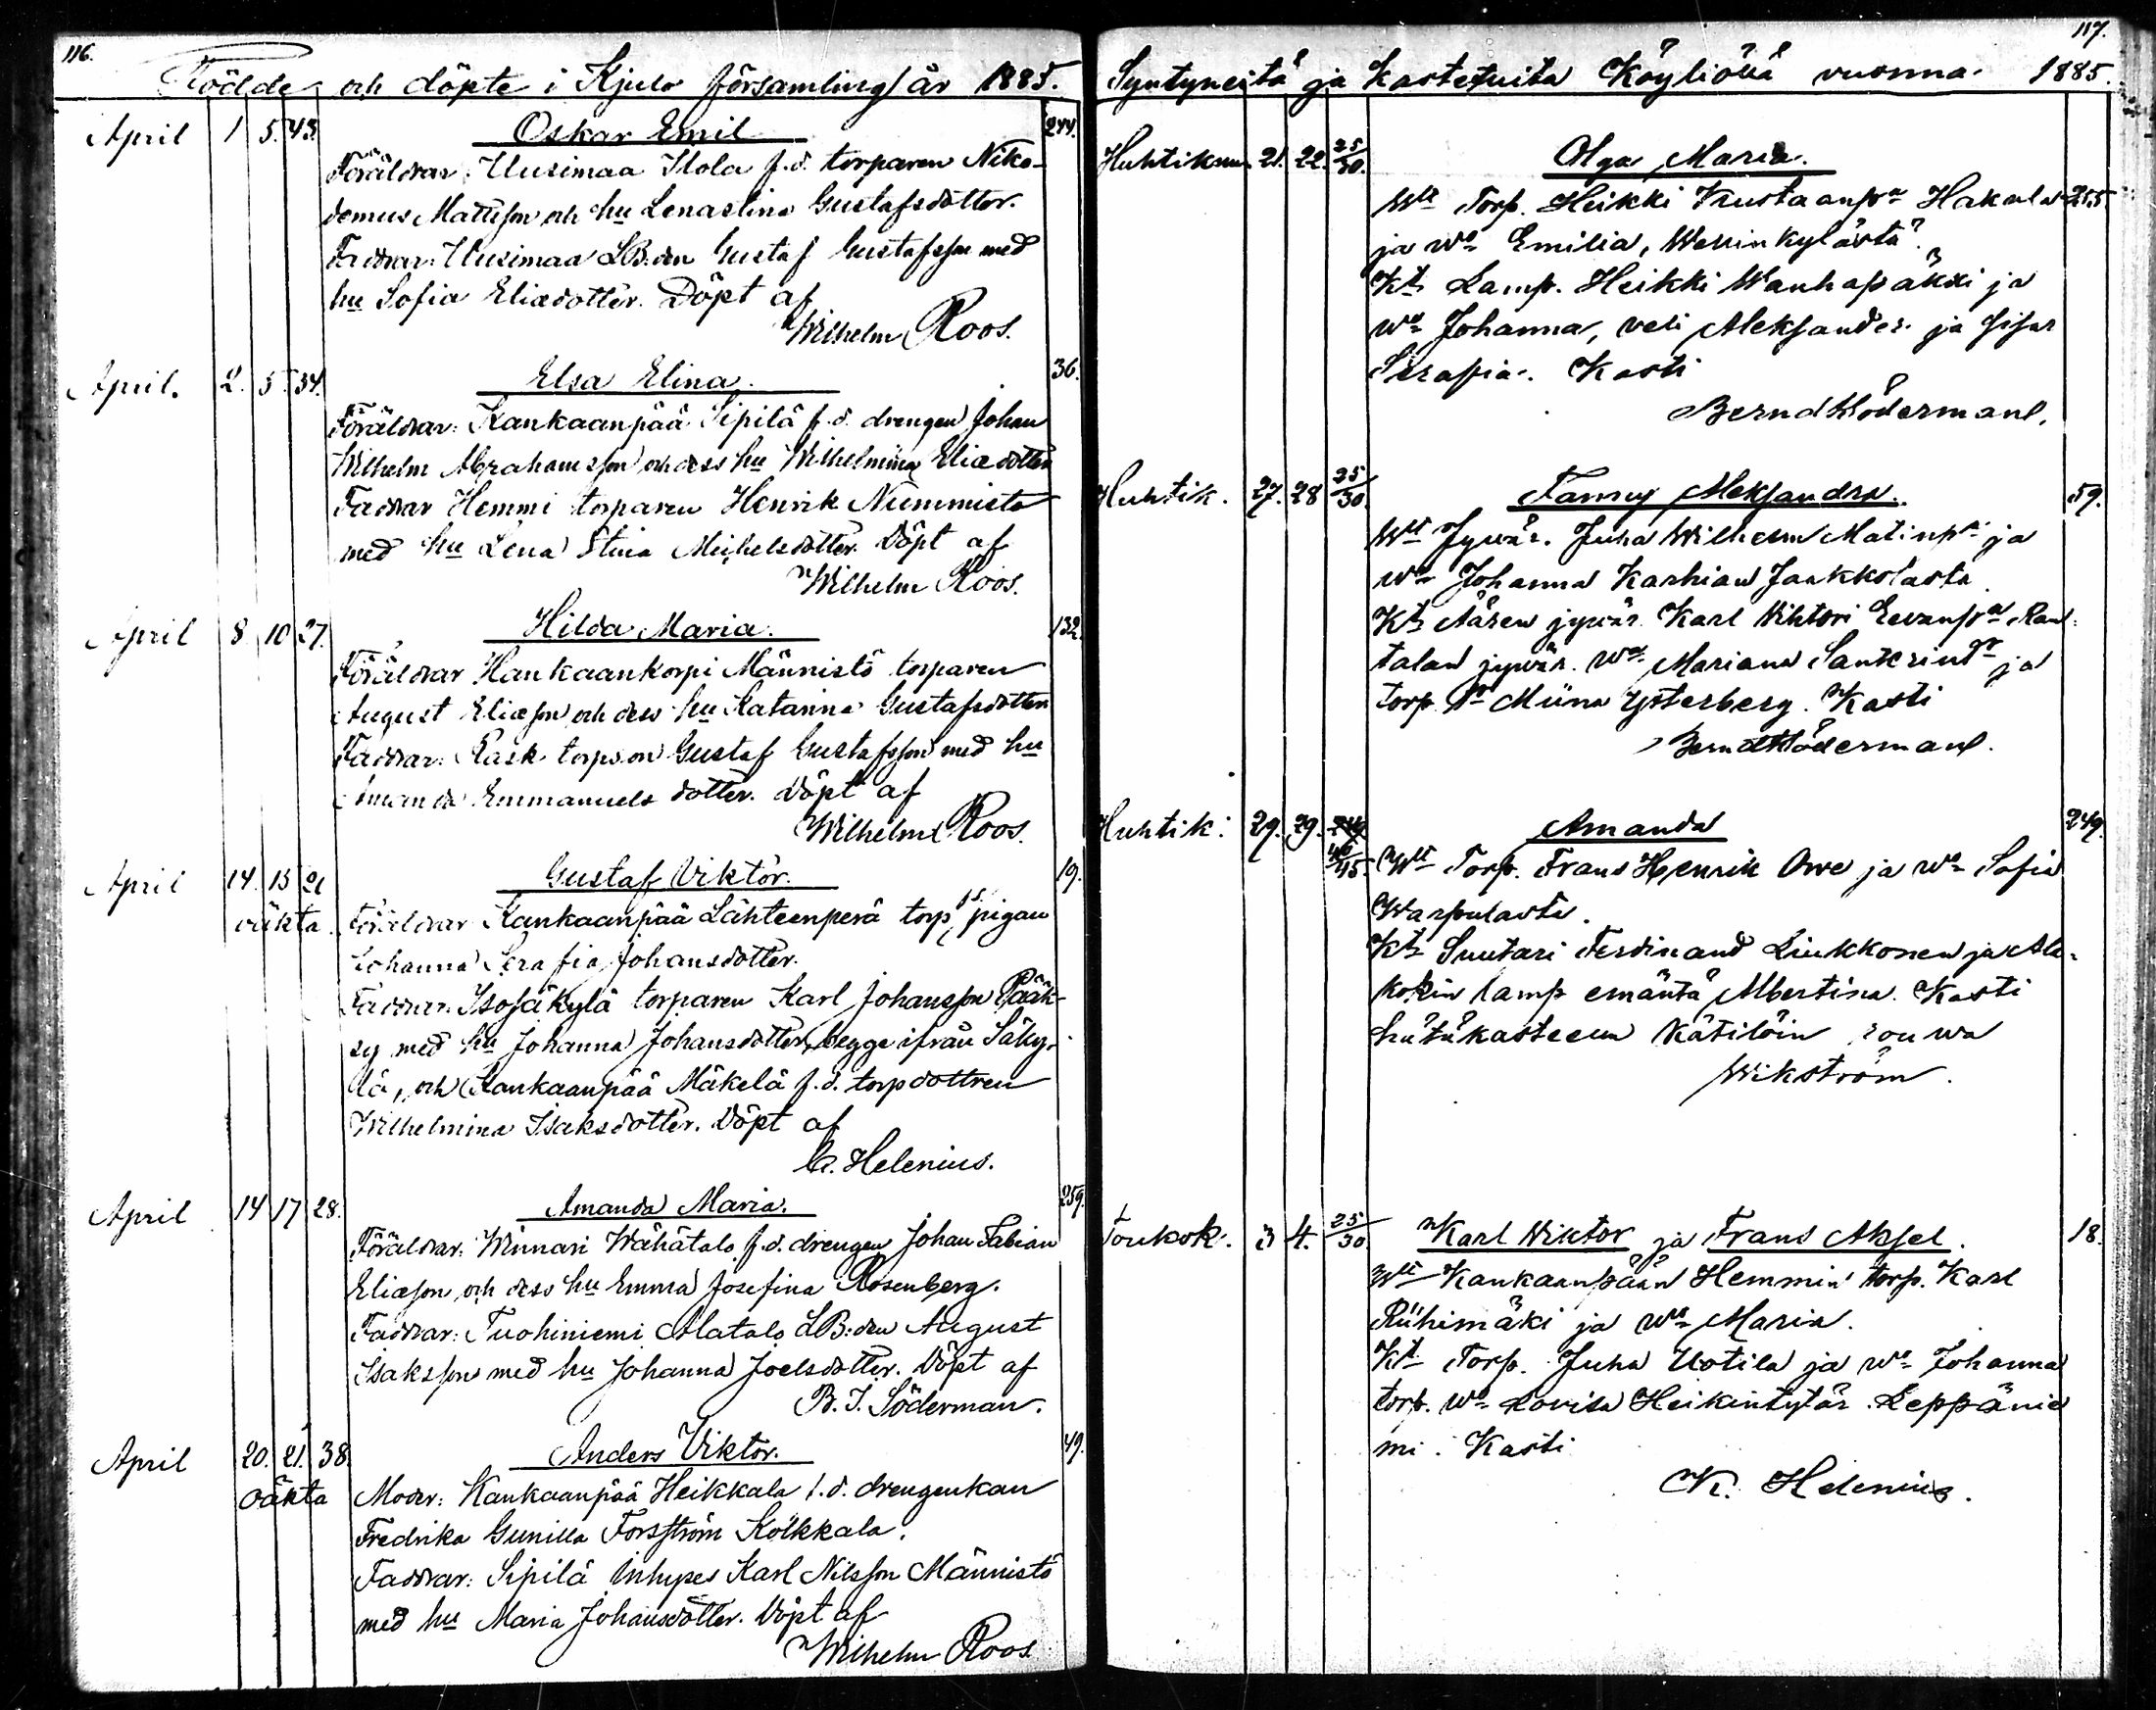 116.
Födde och döpte i Kjulo församling år 1885.
April 1 5. 43. Oskar Emil 244.
Föräldrar: Uusimaa Ilola f.d. torparen Niko-
demus Mattsson och hu Lenastina Gustafsdotter.
Faddrar: Uusimaa LB:den Gustaf Gustafsson med
hu Sofia Eliædotter. Döpt af
Wilhelm Roos.
April. 2. 5. 34. Elsa Elina. 36.
Föräldrar: Kankaanpää Sipilä f.d. drengen Johan
Wilhelm Abrahamsson och dess hu Wilhelmina Eliædotter
Faddrar Hemmi torparen Henrik Nummisto
med hu Lena Stina Michelsdotter. Döpt af
Wilhelm Roos.
April 8 10 27. Hilda Maria. 132.
Föräldrar Hankaankorpi Männistö torparen
August Eliæson och dess hu Katarina Gustafsdotter
Faddrar: Rask torps.on Gustaf Gustafsson med hu
Amanda Emmanuels dotter. Döpt af
Wilhelm Roos.
April 14. 15 21 Gustaf Viktor. 19.
oäkta. Föräldrar Kankaanpää Lähteenperä torp pigan
Johanna Serafia Johansdotter.
Faddrar: Isosäkylä torparen Karl Johansson Pääk-
sy med hu Johanna Johansdotter, begge ifrån Säky-
lä, och Kankaanpää Mäkelä f.d. torpdottren
Wilhelmina Isaksdotter. Döpt af
K. Helenius.
April 14 17 28. Amanda Maria. 259.
Föräldrar: Winnari Wähätalo f.d. drengen Johan Fabian
Eliæson och dess hu Emma Josefina Rosenberg.
Faddrar: Tuohiniemi Alatalo LB:den August
Isaksson med hu Johanna Joelsdotter. Döpt af
B. I. Söderman.
April 20. 21. 38. Anders Viktor. 49.
oäkta Moder: Kankaanpää Heikkala f.d. drengenkan
Fredrika Gunilla Forsström Kölkkala.
Faddrar: Sipilä inhyses Karl Nilsson Männistö
med hu Maria Johansdotter. Döpt af
Wilhelm Roos
117.
Syntyneitä ja kastetuita Köyliössä vuonna 1885.
Huhtikuu 21. 22. 25/30. Olga Maria.
Wt Torp. Heikki Kustaanpa Hakula 255.
ja wa Emilia, Wessinkylästä.
Kt Lamp. Heikki Wanhapäkki ja
wa Johanna, veli Aleksander ja sisar
Serafia. Kasti
Bernd Södermanl.
Huhtik. 27. 28 25/30. Fanny Aleksandra. 59.
Wt Jywär. Juha Wilhelm Matinpa ja
wa Johanna Karhian Jaakkolasta
Kt Ääsen jywär. Karl Wihtori Eevanpa Ran-
talan jywär. wa Mariana Santerint ja
torp. Miina Ysterberg. Kasti
Bernd Södermanl.
Huhtik. 29. 29. 249 40/45. Amanda 249.
Wt Torp. Frans Henrik Orre ja wa Sofia
Warpulasta.
Kt Suutari Ferdinand Liukkonen ja Ala-
kokin lamp emäntä Albertina. Kasti
hätäkasteen Kätilöin rouwa
Wikström.
Toukok. 3 4. 25/30. Karl Wiktor ja Frans Aksel. 18.
Wt Kankaanpään Hemmin torp. Karl
Riihimäki ja wa Maria.
Kt Torp. Juha Uotila ja wa Johanna
torp. wa Lovisa Heikintytär. Leppänie
mi. Kasti
K. Helenius.